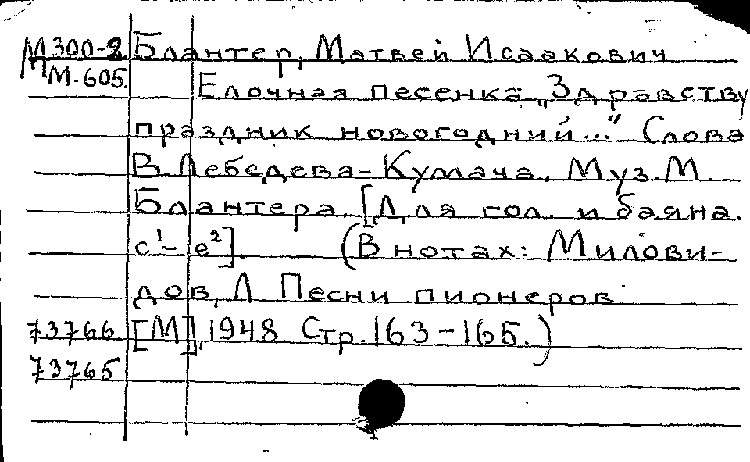 М300-2 Блантер, Матвей Исаакович
М-605. Елочная песенка „Здравству
праздник новогодний..." Слова
В. Лебедева-Кумача. Муз. М.
Блантера. [Для гол. и баяна.
c¹- e²]. (В нотах: Милови-
дов, Л. Песни пионеров
73766 [М], 1948 Стр. 163-165.)
73765